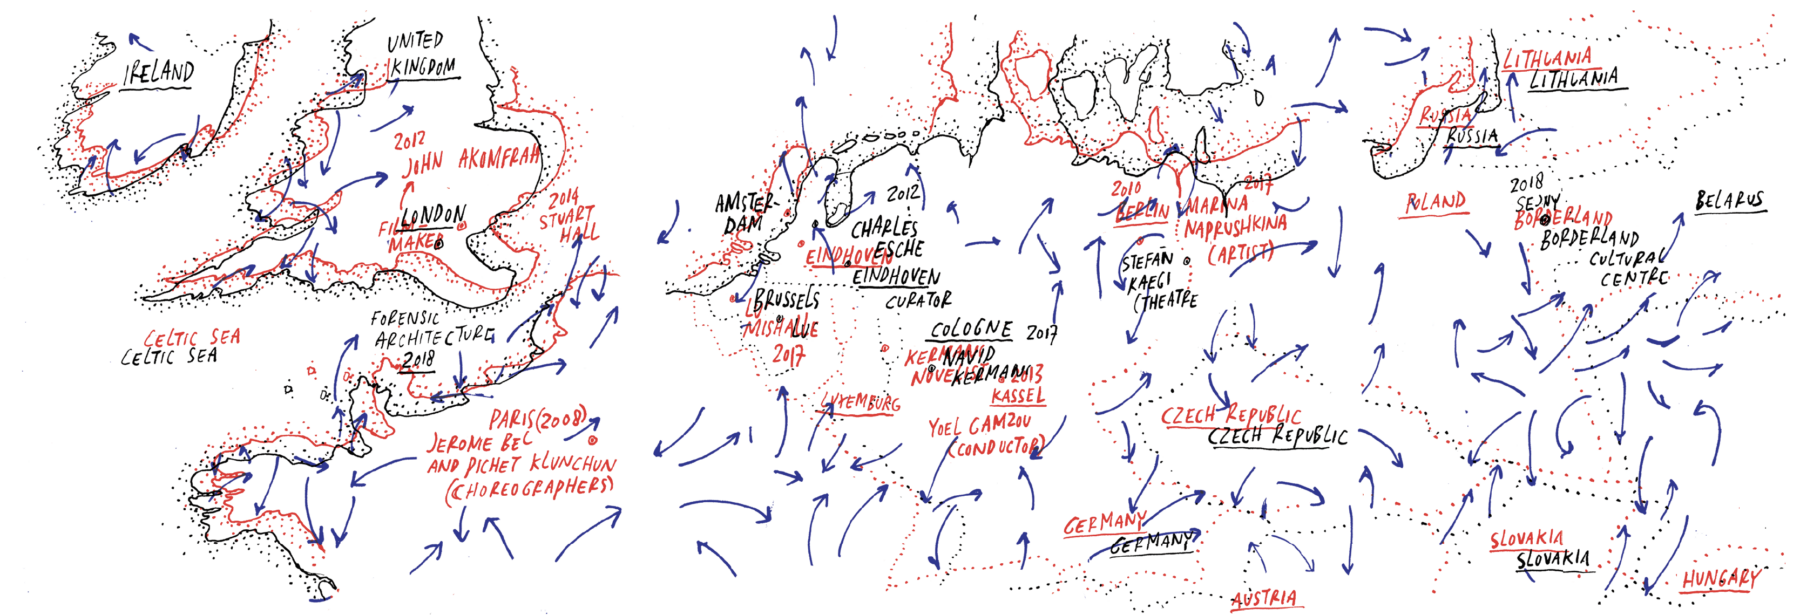 IRELAND
UNITED
KINGDOM
2012
JOHN AKOMFRAH
LONDON
FILM-
MAKER
2014
STUART
HALL
CELTIC SEA
CELTIC SEA
FORENSIC
ARCHITECTURE
2018
PARIS (2008)
JEROME BEL
AND PICHET KLUNCHUN
(CHOREOGRAPHERS)
AMSTER-
DAM
2012
CHARLES
ESCHE
EINDHOVEN
EINDHOVEN
CURATOR
BRUSSELS
MISHALLE
LUC
2017
COLOGNE 2017
NAVID
KERMANI
KERMANI
NOVELIST
2013
KASSEL
LUXEMBURG
YOEL GAMZOU
(CONDUCTOR)
2010
BERLIN
2017
MARINA
NAPRUSHKINA
(ARTIST)
STEFAN
KAEGI
(THEATRE
CZECH REPUBLIC
CZECH REPUBLIC
GERMANY
GERMANY
AUSTRIA
LITHUANIA
LITHUANIA
RUSSIA
RUSSIA
POLAND
2018
SEJNY
BORDERLAND
BORDERLAND
CULTURAL
CENTRE
BELARUS
SLOVAKIA
SLOVAKIA
HUNGARY